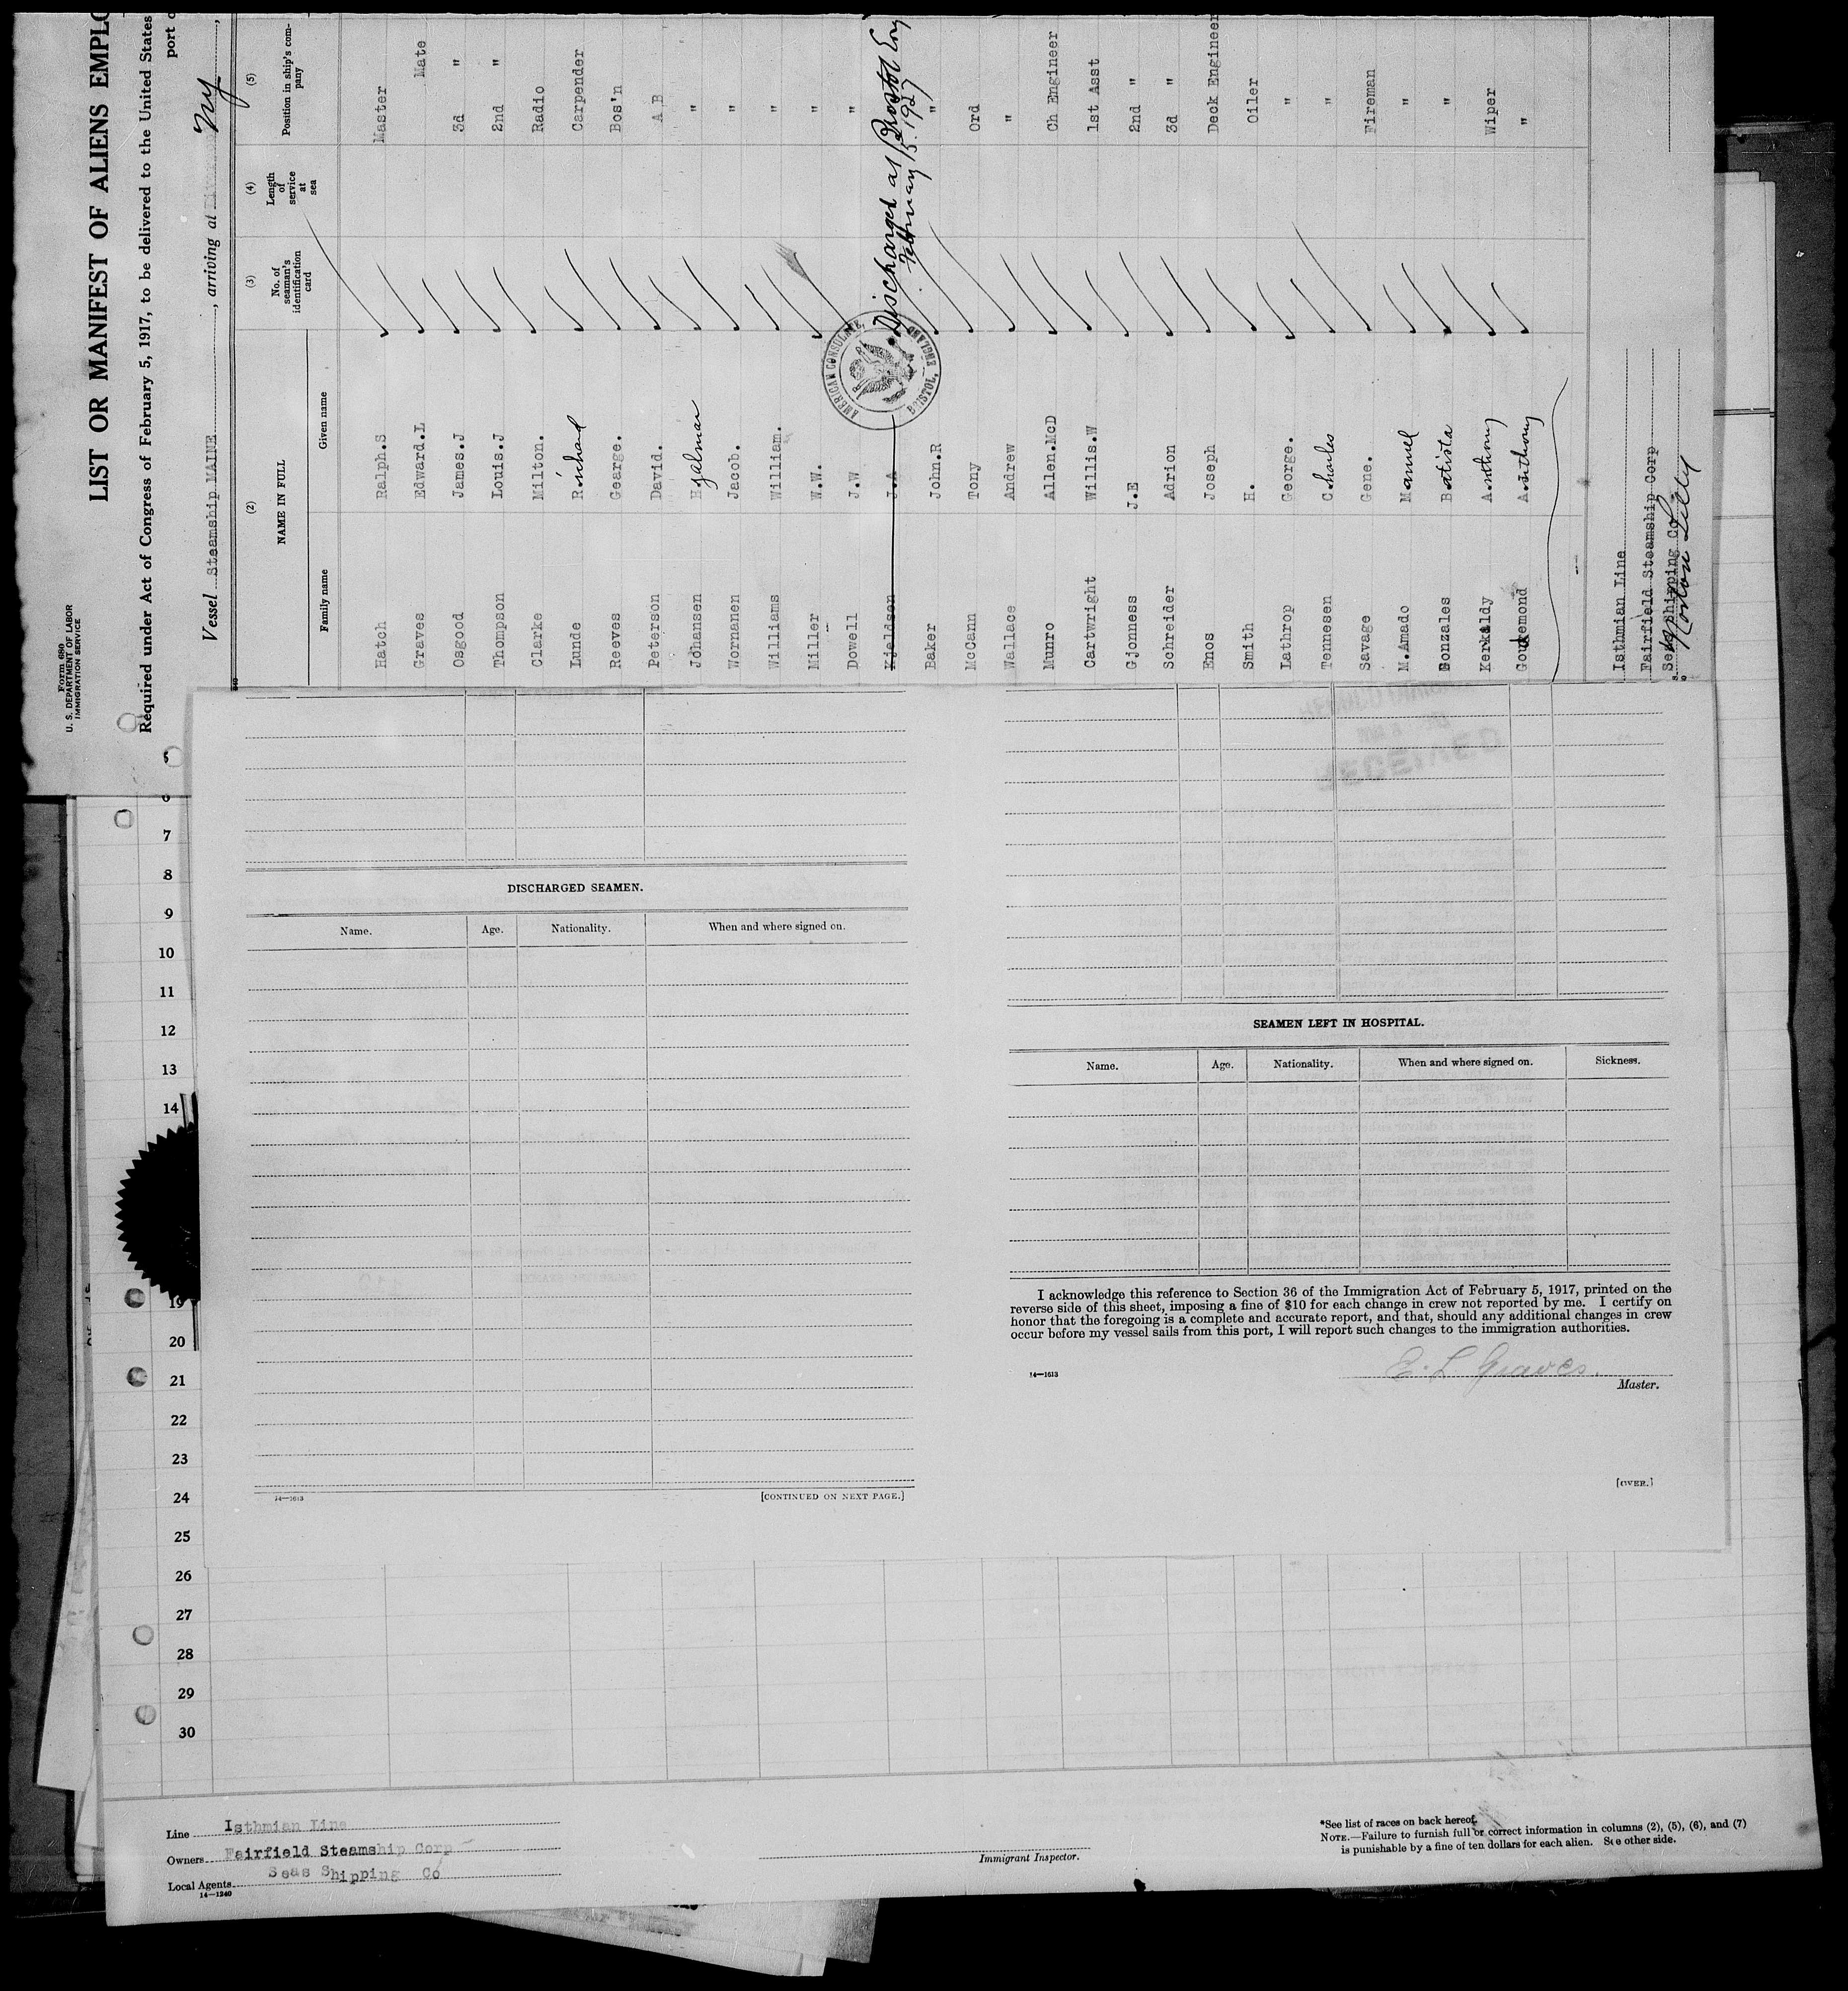 Form 680
U. S. DEPARTMENT OF LABOR
IMMIGRATION SERVICE
LIST OR MANIFEST OF ALIENS EMPLO
Required under Act of Congress of February 5, 1917, to be delivered to the United States
port o
Vessel Steamship MAINE, arriving at NY
(2) (3) (4) (5)
NAME IN FULL No. of seaman's identification card Length of service at sea Position in ship's company
Family name Given name
Hatch Ralph.S Master
Graves Edward.L Mate
Osgood James.J 3d "
Thompson Louis.J 2nd "
Clarke Milton. Radio
Lunde Richard Carpender
Reeves Gearge. Bos'n
Peterson David. A B
Johansen Hjalmar "
Wornanen Jacob. "
Williams William. "
Miller W.W. "
Dowell J.W "
Kjeldsen J.A Discharged at Bristol Eng
February 15. 1927
AMERICAN CONSULATE, BRISTOL, ENGLAND
Baker John.R "
McCann Tony Ord
Wallace Andrew "
Munro Allen.McD Ch Engineer
Cartwright Willis.W 1st Asst
Gjonness J.E 2nd "
Schreider Adrion 3d "
Enos Joseph Deck Engineer
Smith H. Oiler
Lathrop George. "
Tennesen Charles "
Savage Gene. Fireman
M.Amado Manuel "
Gonzales Batista "
Kerkaldy Anthony Wiper
Goukemond Anthony "
Isthmian Line
Fairfield Steamship Corp
Seas Shipping Co
Norton Lilly
6
7
8
9
10
11
12
13
14
19
20
21
22
23
24
25
26
27
28
29
30
DISCHARGED SEAMEN.
Name. Age. Nationality. When and where signed on.
14—1613 [CONTINUED ON NEXT PAGE.]
RECEIVED
SEAMEN LEFT IN HOSPITAL.
Name. Age. Nationality. When and where signed on. Sickness.
I acknowledge this reference to Section 36 of the Immigration Act of February 5, 1917, printed on the
reverse side of this sheet, imposing a fine of $10 for each change in crew not reported by me. I certify on
honor that the foregoing is a complete and accurate report, and that, should any additional changes in crew
occur before my vessel sails from this port, I will report such changes to the immigration authorities.
E. L Graves.
14—1613 Master.
[OVER.]
Line Isthmian Line
Owners Fairfield Steamship Corp
Local Agents Seas Shipping Co
14—1240
Immigrant Inspector.
*See list of races on back hereof.
NOTE.—Failure to furnish full or correct information in columns (2), (5), (6), and (7)
is punishable by a fine of ten dollars for each alien. See other side.